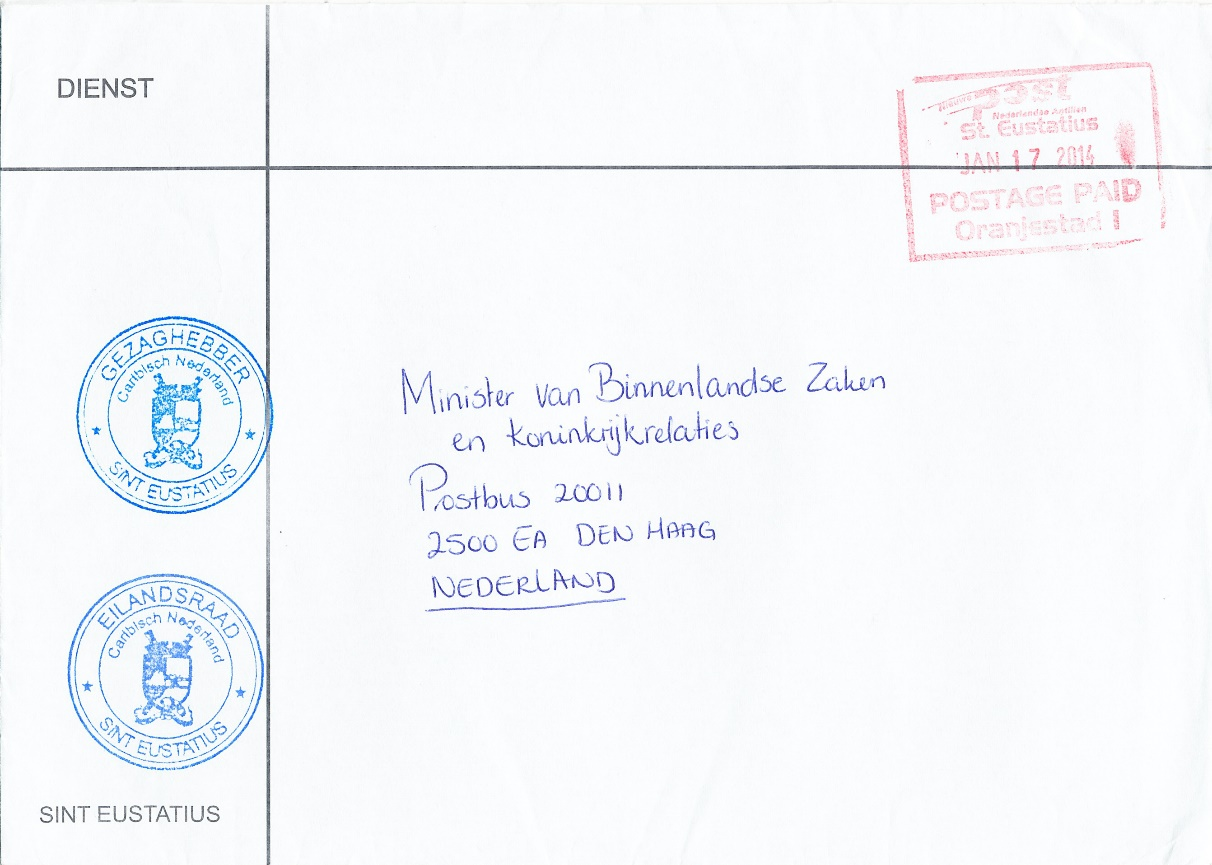 DIENST
Nieuwe post
Nederlandse Antillen
St. Eustatius
JAN 17 2014
POSTAGE PAID
Oranjestad 1
GEZAGHEBBER
Caribisch Nederland
SINT EUSTATIUS
Minister van Binnenlandse Zaken
en Koninkrijkrelaties
Postbus 20011
2500 EA DEN HAAG
NEDERLAND
EILANDSRAAD
Caribisch Nederland
SINT EUSTATIUS
SINT EUSTATIUS